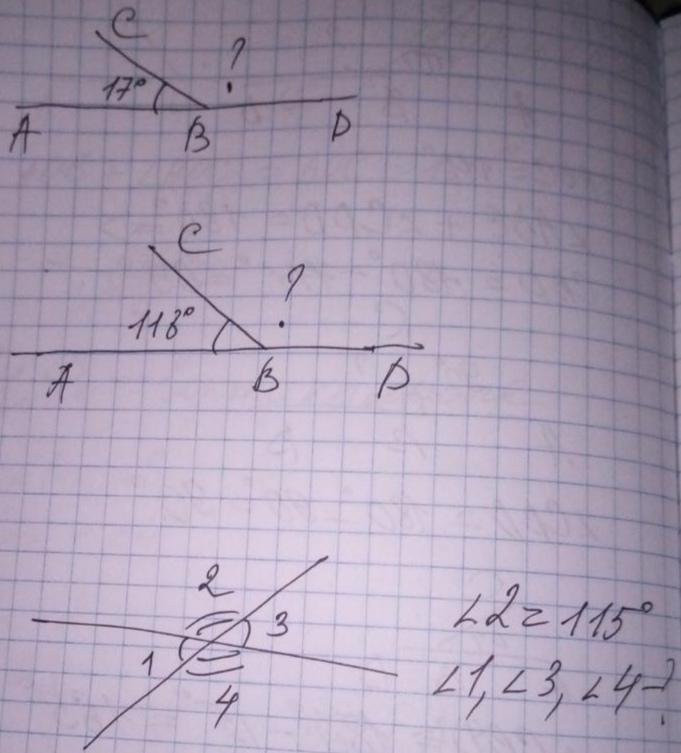 C
?
17°
A B D
C
?
118°
A B D
2
3
1
4
∠2 = 115°
∠1, ∠3, ∠4-?